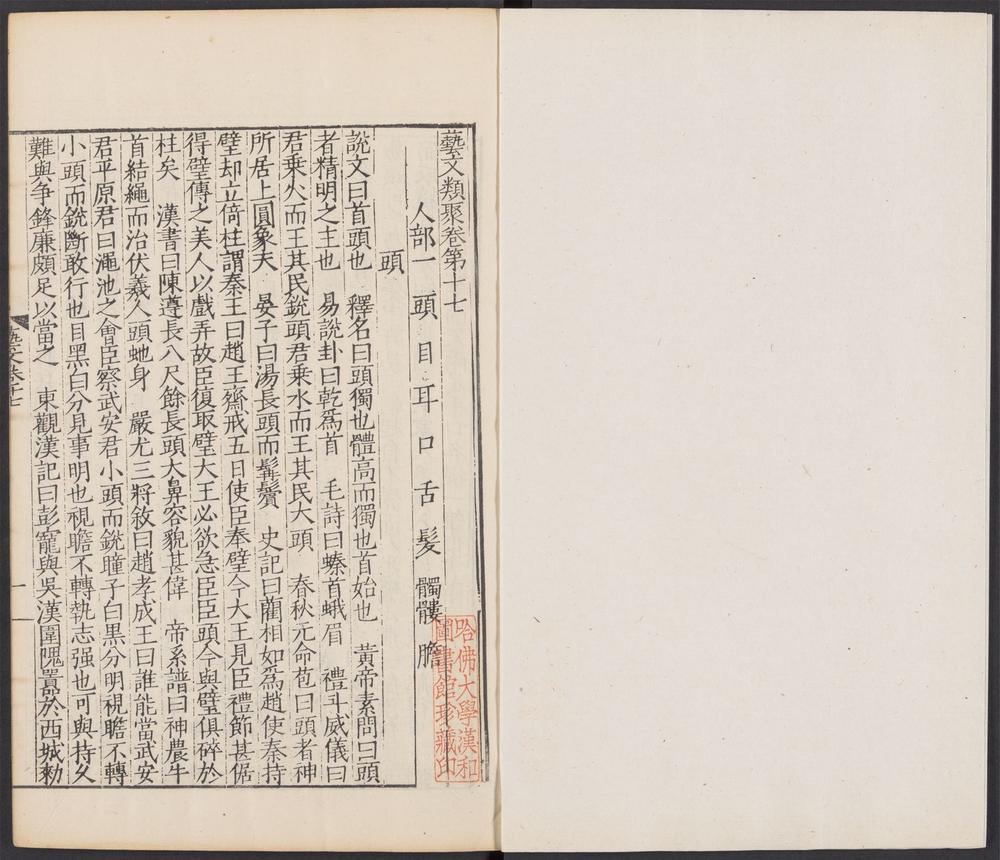 藝文類聚卷第十七
人部一 頭 目 耳 口 舌 髮 髑髏 膽
頭
說文曰首頭也 釋名曰頭獨也體高而獨也首始也 黃帝素問曰頭
者精明之主也 易說卦曰乾爲首 毛詩曰螓首蛾眉 禮斗威儀曰
君乘火而王其民銳頭君乘水而王其民大頭 春秋元命苞曰頭者神
所居上圓象天 晏子曰湯長頭而髯鬢 史記曰藺相如爲趙使秦持
璧却立倚柱謂秦王曰趙王齋戒五日使臣奉璧今大王見臣禮節甚倨
得璧傳之美人以戲弄故臣復取璧大王必欲急臣臣頭今與璧俱碎於
柱矣 漢書曰陳遵長八尺餘長頭大鼻容貌甚偉 帝系譜曰神農牛
首結繩而治伏羲人頭虵身 嚴尤三將敘曰趙孝成王曰誰能當武安
君平原君曰澠池之會臣察武安君小頭而銳瞳子白黑分明視瞻不轉
小頭而銳斷敢行也目黑白分見事明也視瞻不轉執志强也可與持久
難與争鋒廉頗足以當之 東觀漢記曰彭寵與吳漢圍隗囂於西城勑
藝文卷十七
一
哈佛大學漢和
圖書館珍藏印